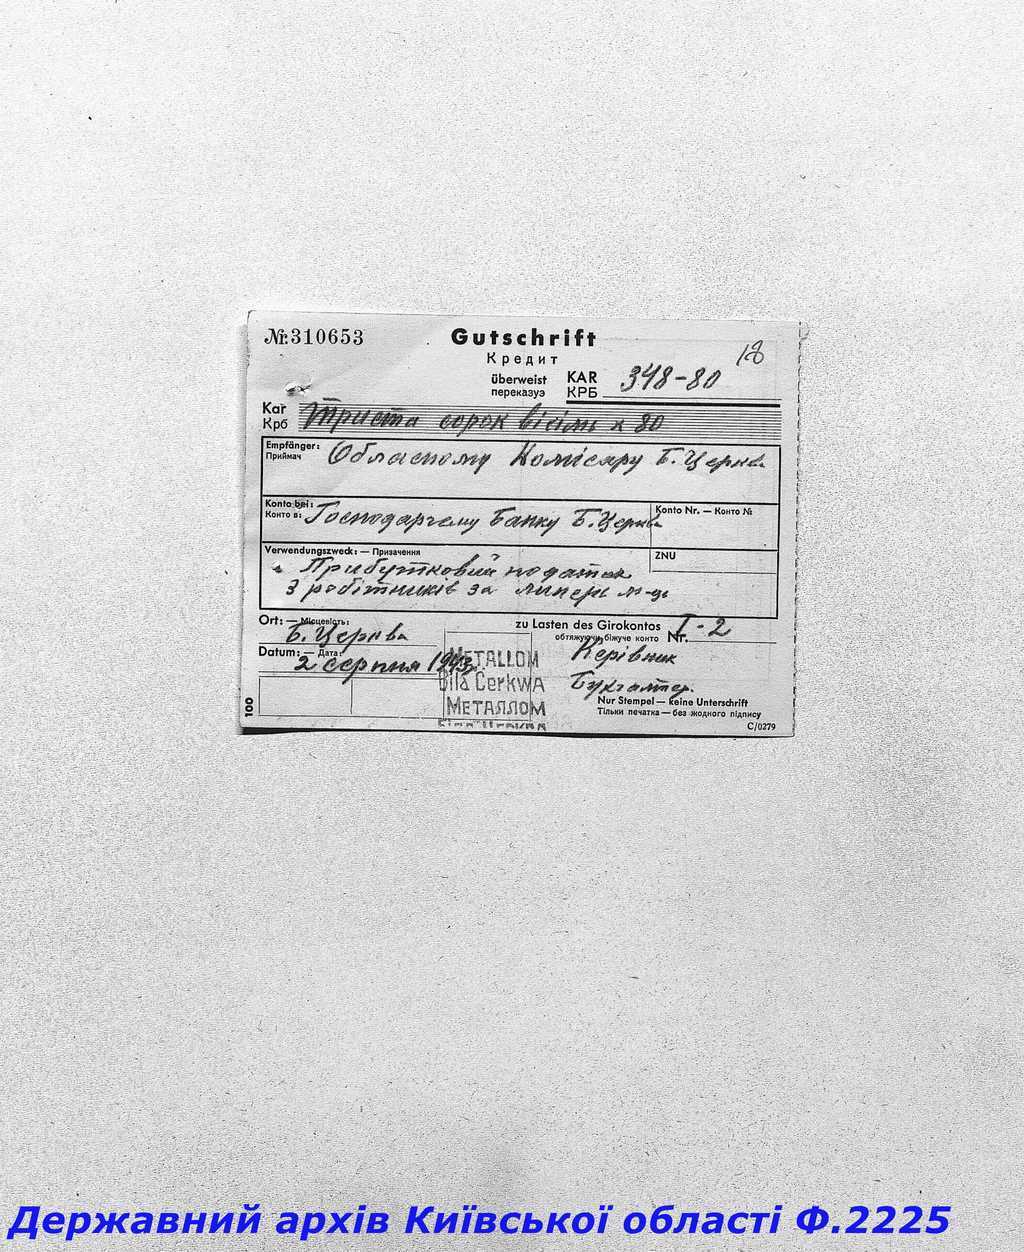 №310653
Gutschrift
Кредит
18
überweist KAR 348-80
переказуэ КРБ
Kar
Крб Триста сорок вісім к 80
Empfänger: Обласному Комісару Б. Церкв.
Приймач
Konto bei: Konto Nr. — Конто №
Конто в: Господарчему Банку Б. Церкв
Verwendungszweck: — Призачення ZNU
Прибутковий податок
з робітників за липень м-ць
Ort: — Місцевість: zu Lasten des Girokontos
Б. Церква обтяжуючи біжуче конто Nr. I-2
Datum: — Дата: Керівник
2 серпня 1943р.
METALLOM
Bila Cerkwa
МЕТАЛЛОМ
Бухгалтер.
Nur Stempel — keine Unterschrift
Тільки печатка — без жодного підпису
100
C/0279
Державний архів Київської області Ф.2225